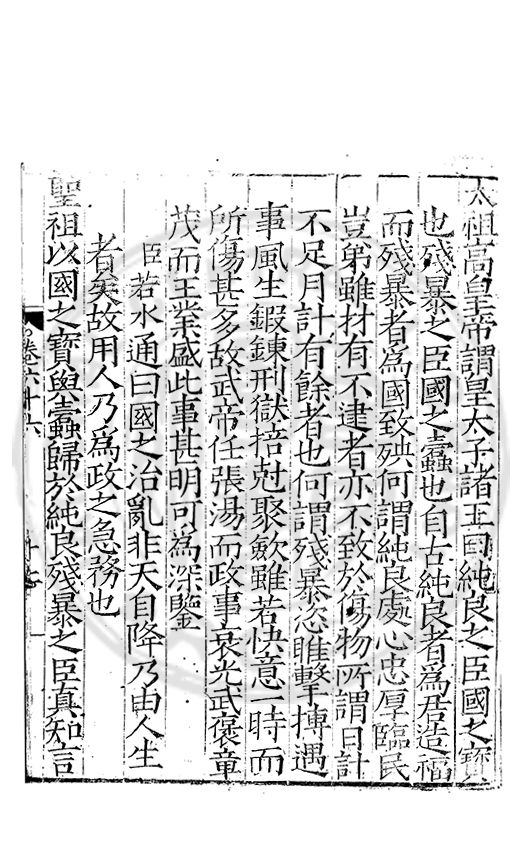 太祖高皇帝謂皇太子諸王曰純良之臣國之寶
也殘暴之臣國之蠹也自古純良者為君造福
而殘暴者為國致殃何謂純良處心忠厚臨民
豈弟雖材有不逮者亦不致於傷物所謂日計
不足月計有餘者也何謂殘暴恣睢擊搏遇
事風生鍛鍊刑獄掊尅聚斂雖若快意一時而
所傷甚多故武帝任張湯而政事衰光武褒章
茂而王業盛此事甚明可為深鑒
臣若水通曰國之治亂非天自降乃由人生
者矣故用人乃為政之急務也
聖祖以國之寶與蠹歸於純良殘暴之臣真知言
卷六十六